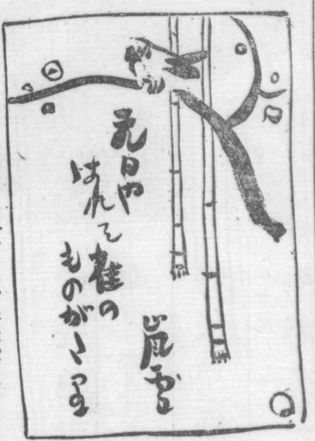 元日や
はれて雀の
ものがたり
嵐雪